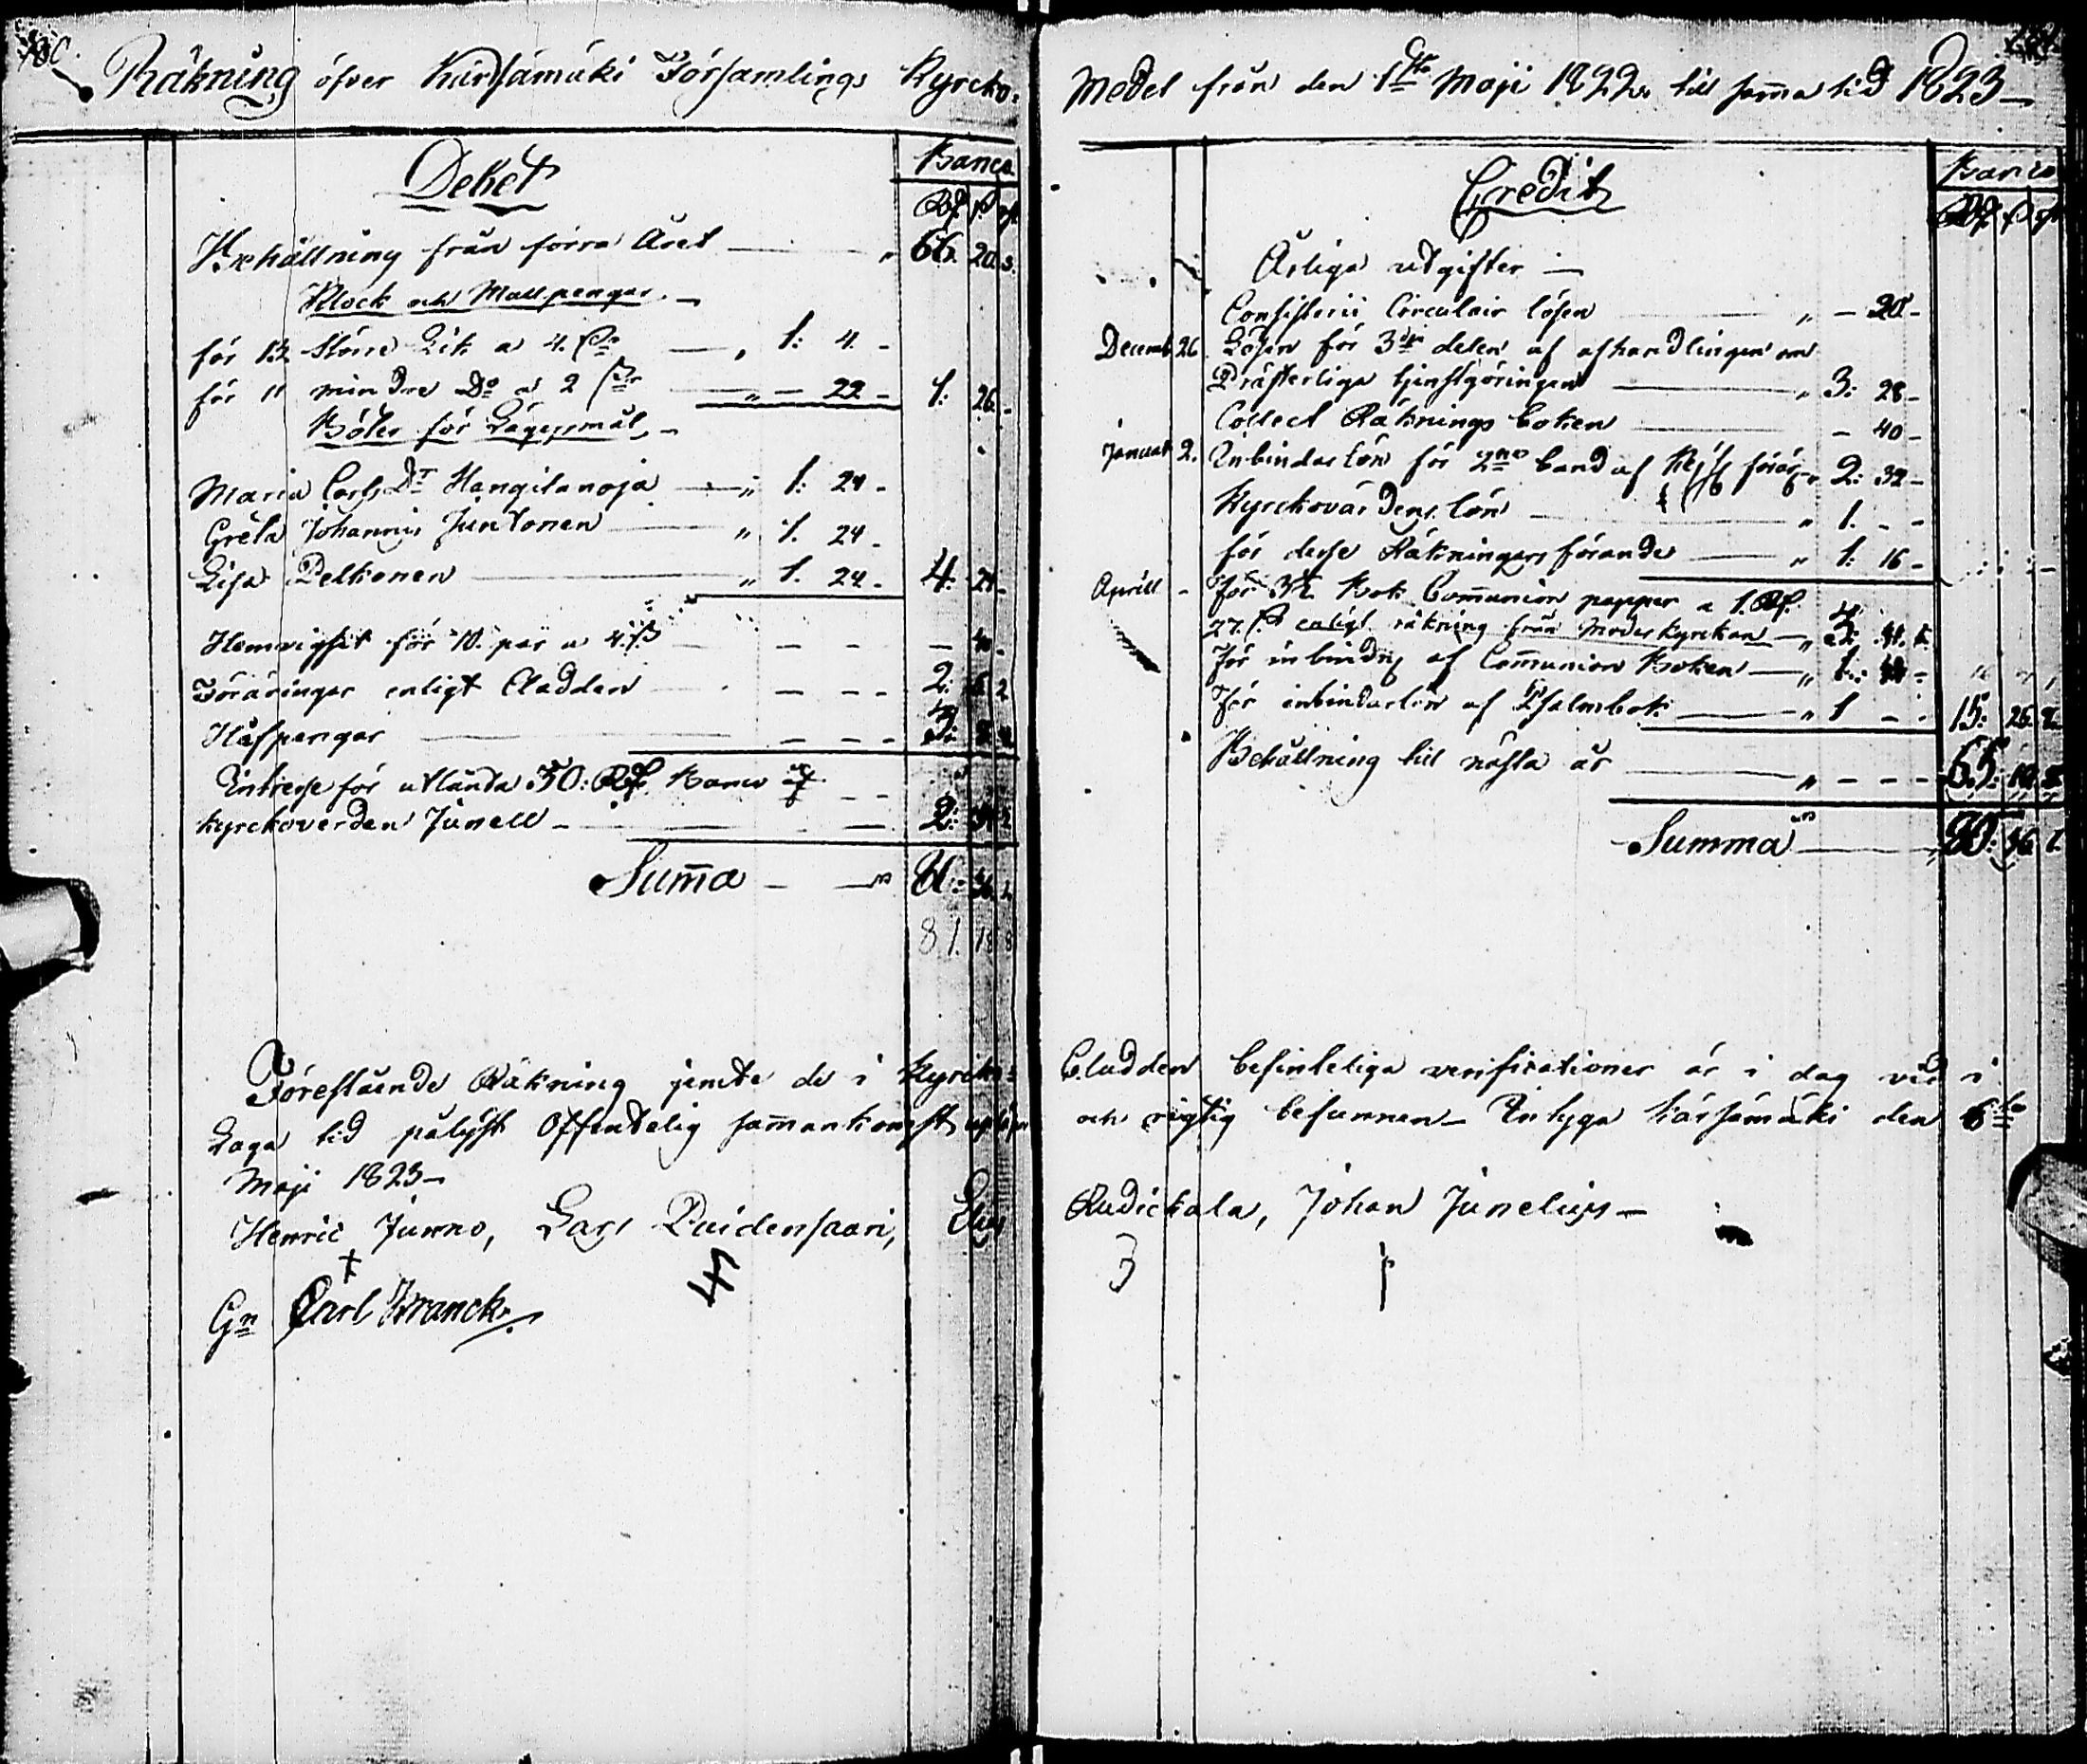 Räkning öfver Kärsämäki Församlings Kyrcko-
Debet
Banco
Rd. ß. rst.
Behållning från förra Året — " 66. 20. 3.
Klock och Mullpengar. —
för 13 större Lik a 4. ß — " 1: 4. -
för 11 mindre Do a 2 ß — " - 22 - 1: 26. -
Böter för Lägersmål, —
Maria Carls Dr Hangilanoja — " 1: 24 -
Greta Johannis Juntonen — " 1. 24 -
Lisa Pelkonen — " 1. 24 - 4: 24 -
Hemvigslt för 10. par a 4. ß — - - - 40 -
Föräringar enligt Cladden — - - - 2:
Håfpengar — - - -
Intresse för utlånta 50: Rd. Banco af
kyrckoverden Junell — 2:
Sum̄a — 81:
81. 18 8
Förestående Räkning jemte de i Kyrcko-
Laga tid pålyst Offentelig sam̄ankomst
Maji 1823 —
Henric Junno, Lars Paidensaari,
Gn Carl Franck
Medel från den 1sta Maji 1822 till sam̄a tid 1823 —
Credit
Banco
Rd. ß. rst.
Årliga utgifter —
Consistorii Circulair lösen — " - 20 -
Decemb 26 Lösen för 3die delen af afhandlingen om
Prästerliga tjenstgöringen — " 3: 28 -
Collect Räknings boken — - 40 -
Januar 2. Inbindar lön för 2ne band af — 2: 32 -
Kyrckovärdens lön — " 1. - -
för desse Räkningars förande — " 1: 16 -
Aprill - för 3½ Bok Com̄union papper a 1. Rd.
27. ß enligt räkning från Moderkyrckan — "
för inbindng af Com̄union Boken — "
för inbindarlön af Psalmbok — " 1 - - 15: 26.
Behållning till nästa år — " - - - 65:
Summa — 80:
Cladden befinteliga verificationer är i dag vid i
och rigtig befunnen — Intyga Kärsämäki den 6te
Rudickala, Johan Junelius —